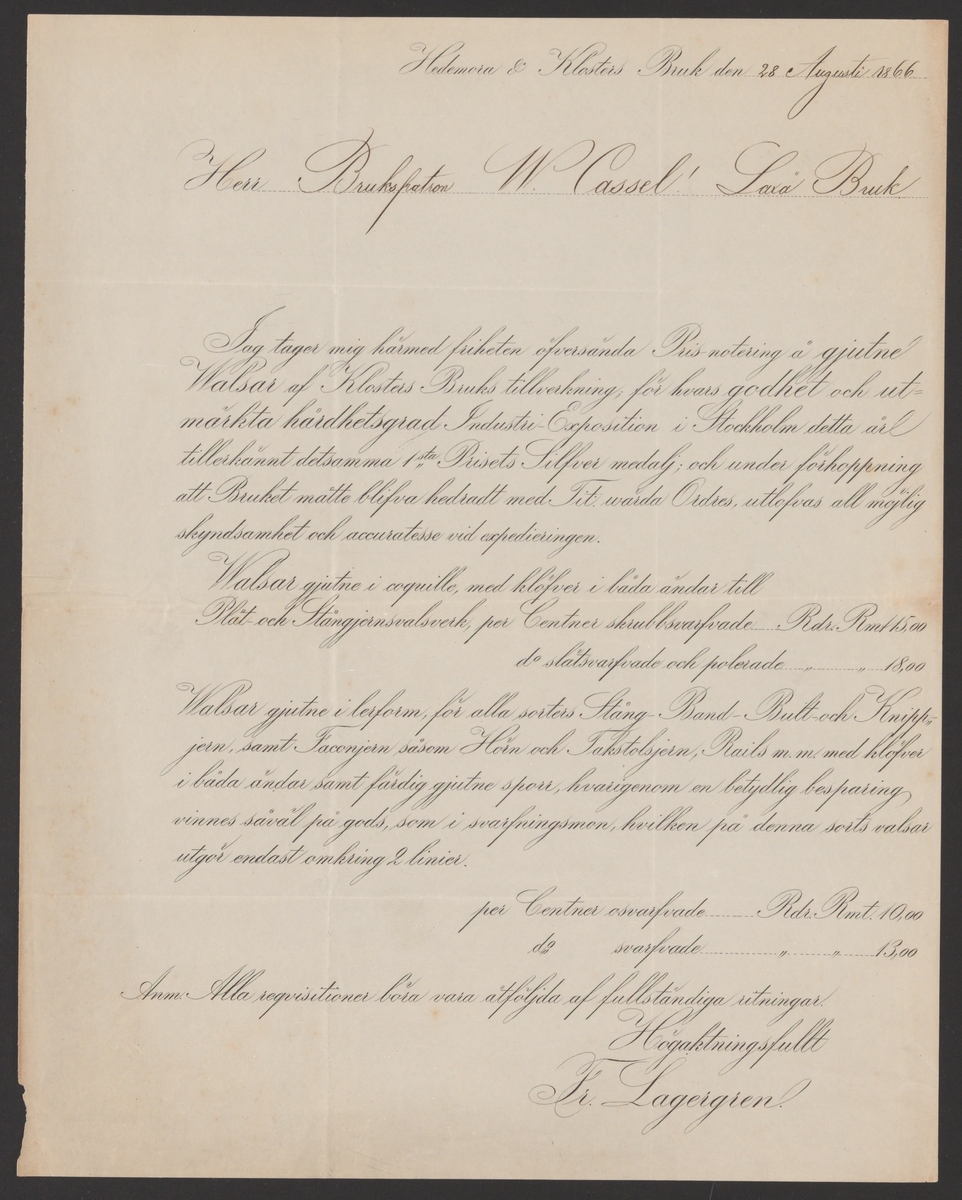 Hedemora & Klosters Bruk den 28 Augusti 1866
Herr Brukspatron W. Cassel! Laxå Bruk
Jag tager mig härmed friheten öfversända Pris-notering å gjutne
Walsar af Klosters Bruks tillverkning, för hvars godhet och ut=
märkta hårdhetsgrad Industri-Exposition i Stockholm detta år
tillerkännt detsamma 1sta Prisets Silfver medalj; och under förhoppning
att Bruket måtte blifva hedradt med Tit. wärda Ordres, utlofvas all möjlig
skyndsamhet och accuratesse vid expedieringen.
Walsar gjutne i coquille, med klöfver i båda ändar till
Plåt- och Stångjernsvalsverk, per Centner skrubbsvarfvade Rdr. Rmt 15,00
do slätsvarfvade och polerade " " 18,00
Walsar gjutne i lerform, för alla sorters Stång- Band- Bult- och Knipp-
jern, samt Faconjern såsom Hörn och Takstolsjern, Rails m.m. med klöfver
i båda ändar samt färdig gjutne sporr, hvarigenom en betydlig besparing
vinnes såväl på gods, som i svarfningsmon, hvilken på denna sorts valsar
utgör endast omkring 2 linier.
per Centner osvarfvade Rdr. Rmt. 10,00
do svarfvade " " 13,00
Anm. Alla reqvisitioner böra vara åtföljda af fullständiga ritningar.
Högaktningsfullt
Fr. Lagergren.